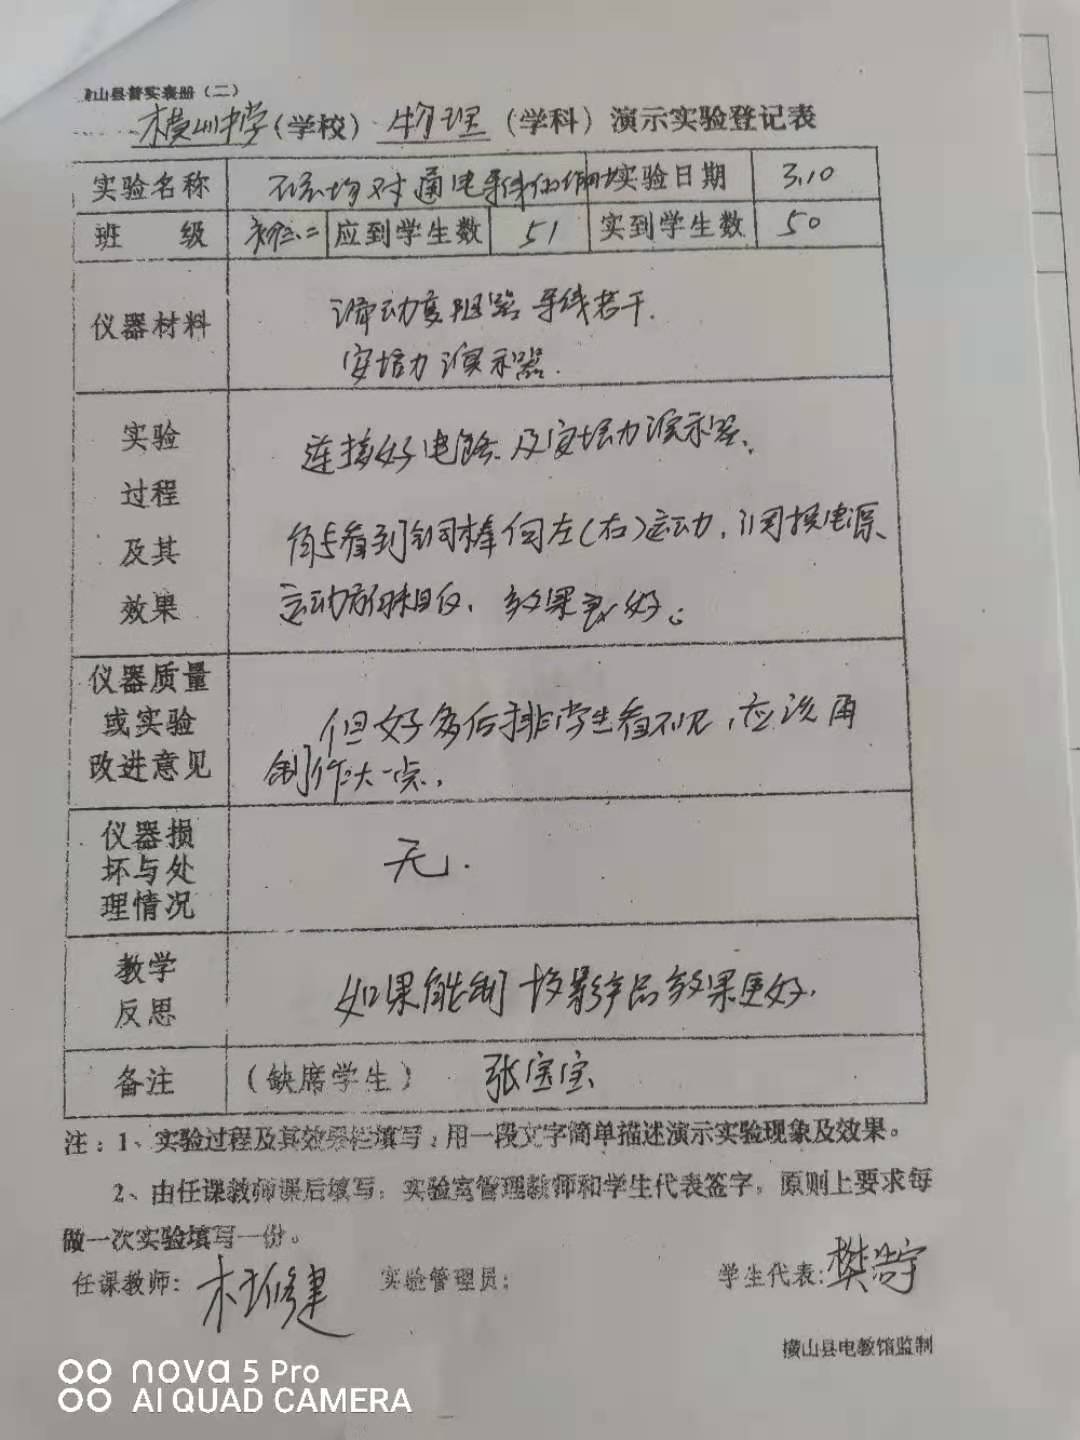 山县普实表册（二）
横山中学（学校）物理（学科）演示实验登记表
实验名称 磁场对通电导线的作用 实验日期 3.10
班 级 初三.二 应到学生数 51 实到学生数 50
仪器材料 滑动变阻器 导线若干.
安培力演示器.
实验
过程
及其
效果
连接好电路及安培力演示器、
能看到铜棒向左(右)运动，调换电源、
运动方向相反、效果更好。
仪器质量
或实验
改进意见
但好多后排学生看不见，应该再
制作大一点.
仪器损
坏与处
理情况
无.
教学
反思
如果能制 投影 效果更好.
备注 （缺席学生） 张宝宝
注：1、实验过程及其效果栏填写：用一段文字简单描述演示实验现象及效果。
2、由任课教师课后填写；实验室管理教师和学生代表签字，原则上要求每
做一次实验填写一份。
任课教师： 修建 实验管理员： 学生代表：樊浩宇
横山县电教馆监制
nova 5 Pro
AI QUAD CAMERA